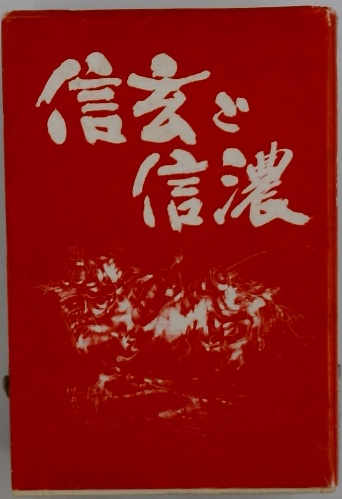 信玄と
信濃